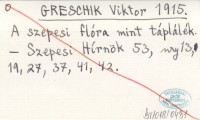 GRESCHIK Viktor 1915.
A szepesi flóra mint táplálék.
– Szepesi Hírnök 53, ny13,
19, 27, 37, 41, 42.